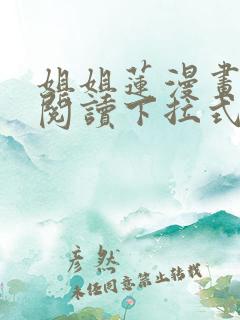 姐姐蓮漫畫
閱讀下拉式
彦然
未经同意禁止转载